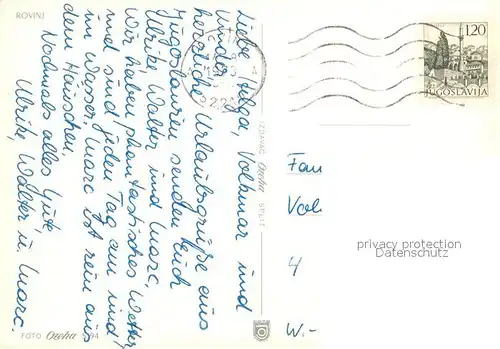 ROVINJ
Liebe Helga, Volkmar und
Kinder
herzliche Urlaubsgrüße aus
Jugoslawien senden Euch
Ulrike, Walter und Marc,
wir haben phantastisches Wetter
und sind jeden Tag am und
im Wasser. Marc ist rein aus
dem Häuschen.
Nochmals alles Gute,
Ulrike, Walter u. Marc.
FOTO 94
IZDAVAČ SPLIT
1.20
JUGOSLAVIJA
Fam
Vol
4
W.-
privacy protection
Datenschutz